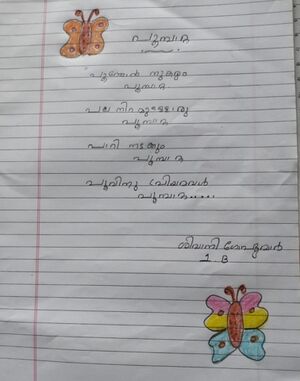 പൂമ്പാറ്റ
പൂന്തേൻ നുകരും
പൂമ്പാറ്റ
പല നിറമുള്ളൊരു
പൂമ്പാറ്റ
പാറി നടക്കും
പൂമ്പാറ്റ
പൂവിനു പ്രിയമവൾ
പൂമ്പാറ്റ.....
ശിവാനി
1 B